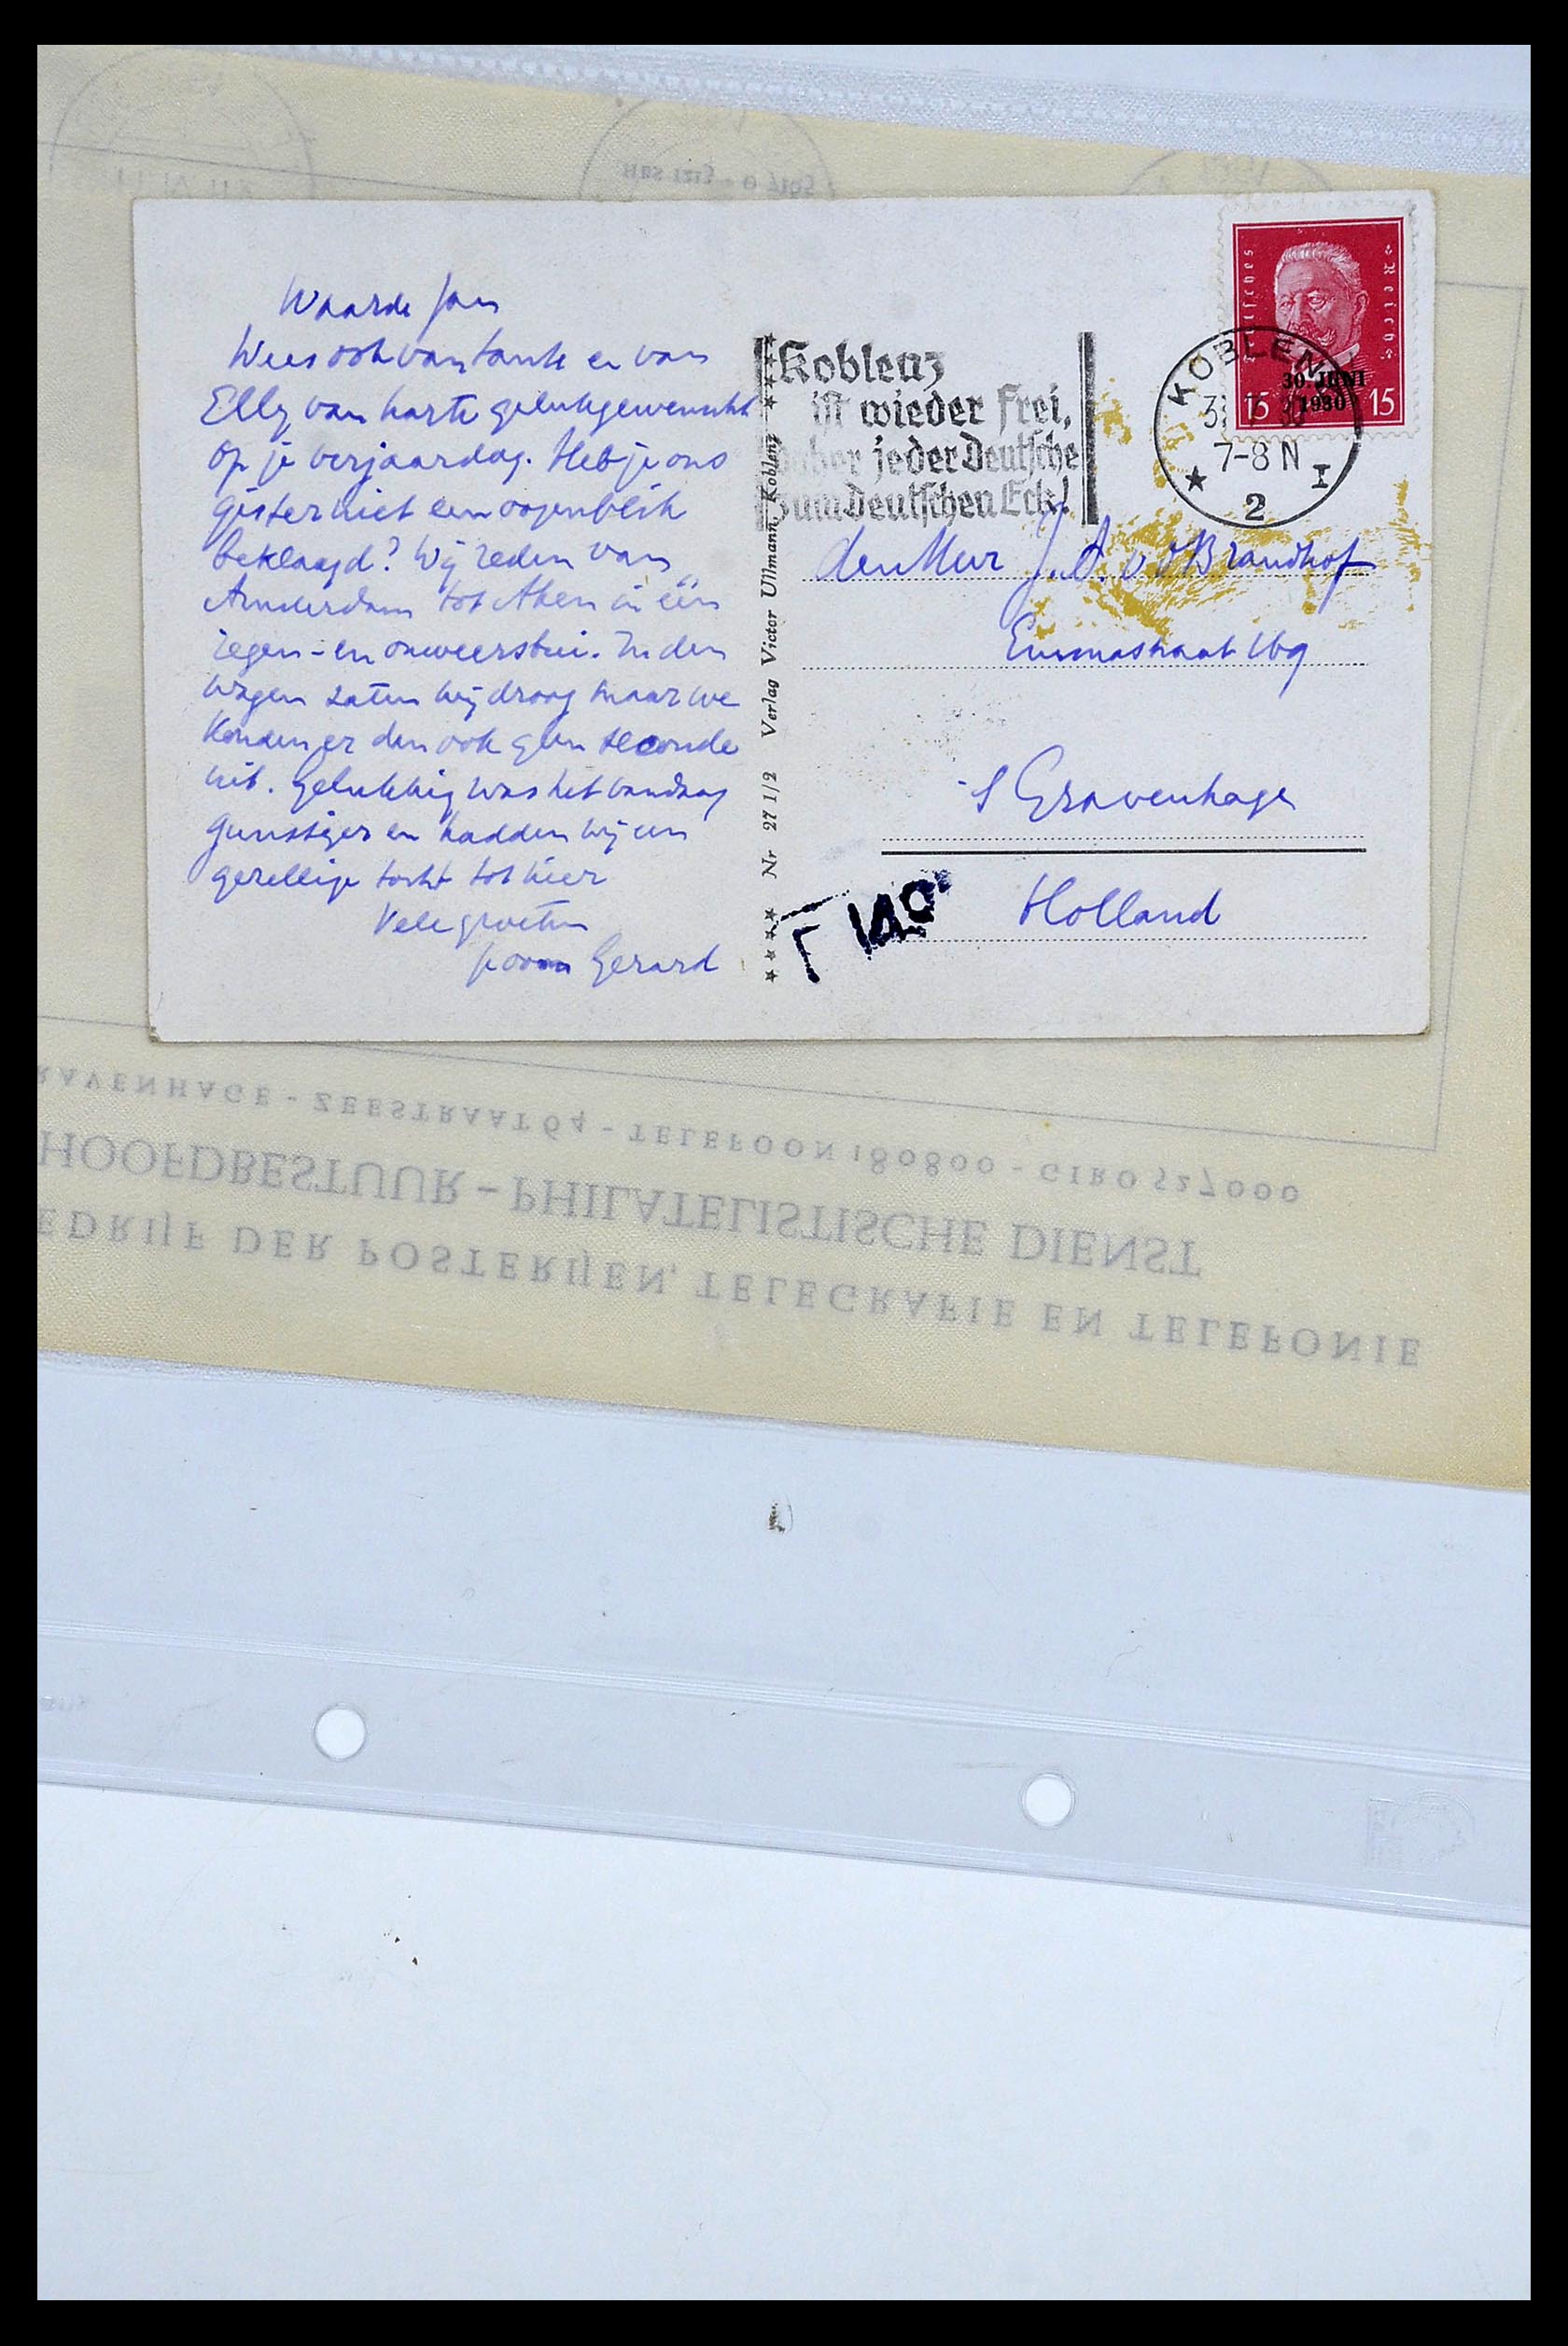 Waarde Jan
Wees ook van tante en van
Elly van harte gelukgewenscht
op je verjaardag. Heb je ons
gister niet een oogenblik
beklaagd? Wij reden van
Amsterdam tot Aken in één
regen- en onweersbui. In den
wagen zaten wij droog maar we
konden er dan ook geen seconde
uit. Gelukkig was het vandaag
gunstiger en hadden wij een
gezellige tocht tot hier
Vele groeten
je oom Gerard
★★★★ Nr 27 1/2 Verlag Victor Ullmann, Koblenz ★★★★
Deutsches Reich
30 JUNI
1930
15 15
KOBLENZ
7-8 N
★ 2 I
Koblenz
ist wieder frei,
daher jeder Deutsche
zum Deutschen Eck!
den Heer J. A. v d Brandhof
Emmastraat 169
's Gravenhage
Holland
T 140
RAVENHAGE - ZEESTRAAT 64 - TELEFOON 180800 - GIRO 527000
HOOFDBESTUUR - PHILATELISTISCHE DIENST
EDRIJF DER POSTERIJEN, TELEGRAFIE EN TELEFONIE